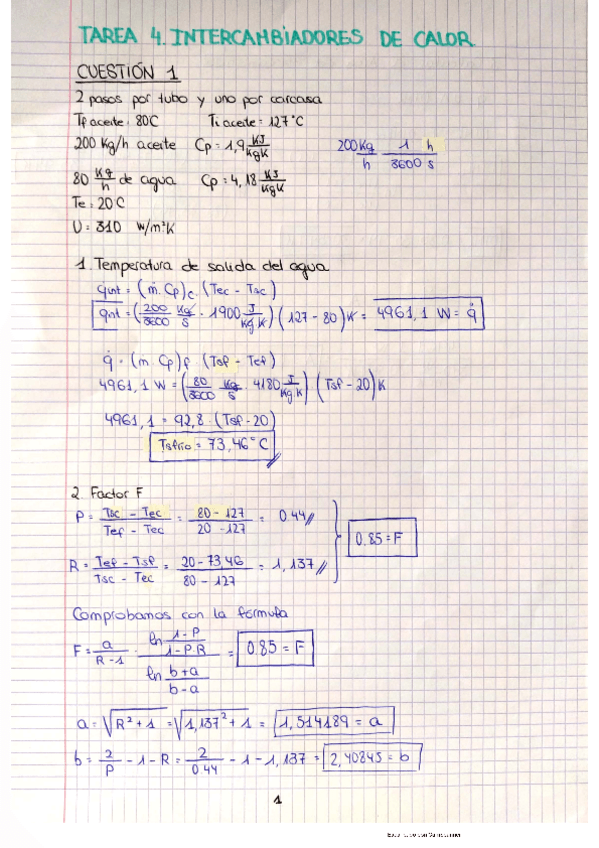 TAREA 4. INTERCAMBIADORES DE CALOR
CUESTIÓN 1
2 pasos por tubo y uno por carcasa
Tf aceite: 80C Ti aceite = 127°C
200 Kg/h aceite Cp = 1,9 KJ/KgK 200 Kg/h 1 h/3600 s
80 Kg/h de agua Cp = 4,18 KJ/KgK
Te = 20C
U = 310 W/m²K
1. Temperatura de salida del agua
qint = (ṁ. Cp)c . (Tec - Tsc)
qint = (200/3600 Kg/s . 1900 J/Kg K) (127 - 80) K = 4961,1 W = q̇
q̇ = (m. Cp)f (Tsf - Tef)
4961,1 W = (80/3600 Kg/s . 4180 J/Kg.K) (Tsf - 20) K
4961,1 = 92,8 . (Tsf - 20)
Tsfrío = 73,46°C
2. Factor F
P = Tsc - Tec / Tef - Tec = 80 - 127 / 20 - 127 = 0.44
0,85 = F
R = Tef - Tsf / Tsc - Tec = 20 - 73,46 / 80 - 127 = 1,137
Comprobamos con la fórmula
F = a / R - 1 . ln 1 - P / 1 - P.R / ln b + a / b - a = 0.85 = F
a = √R² + 1 = √1,137² + 1 = 1,514189 = a
b = 2/P - 1 - R = 2/0.44 - 1 - 1,137 = 2,40845 = b
1